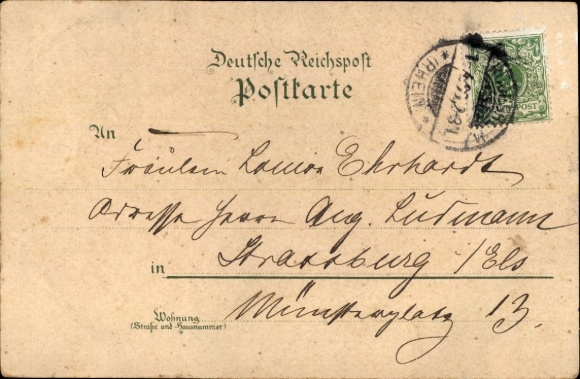 Deutsche Reichspost
Postkarte
An
Fräulein Louise Ehrhardt
Adresse Herrn Aug. Ludmann
in Strassburg /Els
Wohnung
(Straße und Hausnummer)
Münsterplatz 13.
* (RHEIN) *
POST